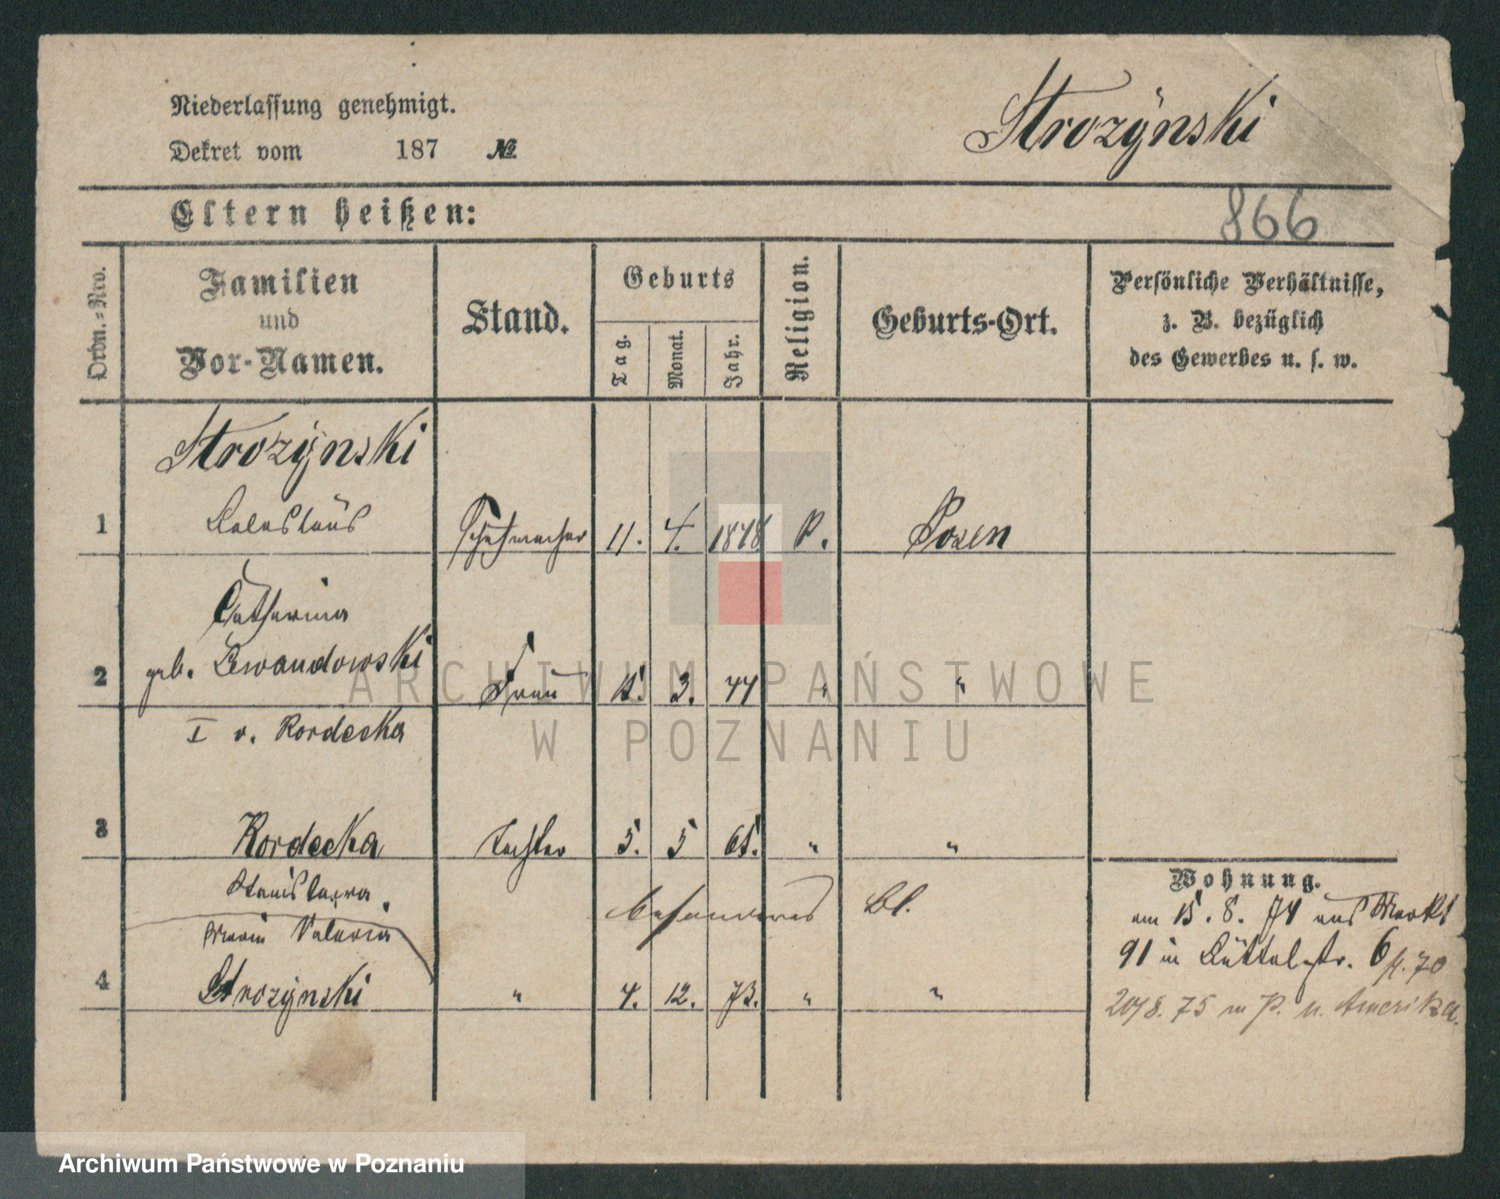 Niederlassung genehmigt.
Strozÿnski
Dekret vom 187 №
Eltern heißen:
866
Ordn.-Nro.
Familien
und
Vor-Namen.
Stand.
Geburts
Tag.
Monat.
Jahr.
Religion.
Geburts-Ort.
Persönliche Verhältnisse,
z. B. bezüglich
des Gewerbes u. s. w.
Strozÿnski
1 Boleslaus Schuhmacher 11. 4. 1848 K. Posen
Catharina
2 geb. Lewandowski Frau 15. 3. 44 " "
I v. Kordecka
3 Kordecka Tochter 5. 5 65. " "
Wohnung.
Stanislawa
besonderes Bl.
am 15. 8. 74 aus Markt
Maria Valeria
91 in Büttelstr. 6 p. 70
4 Strozÿnski " 4. 12. 73. " "
75 n. Amerika.
ARCHIWUM PAŃSTWOWE
W POZNANIU
Archiwum Państwowe w Poznaniu